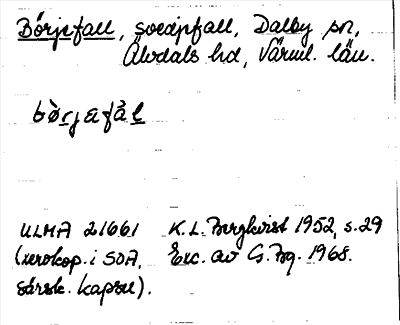 Börjefall, svedjefall, Dalby sn,
Älvdals hd, Värml. län.
bò̀rjäfål
ULMA 21661 K. L. Bergkvist 1952, s. 29
(xerokop. i SOA, Exc. av G. Bq. 1968.
särsk. kapsel).